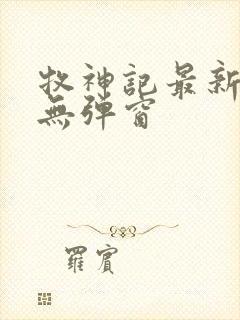 牧神記最新
無彈窗
羅賓